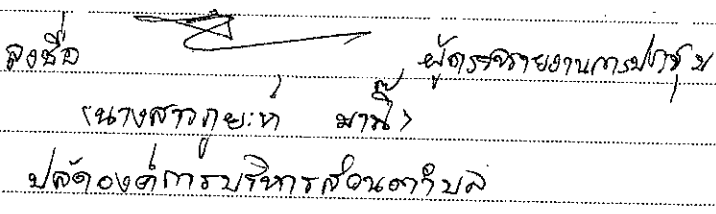 ลงชื่อ ผู้ตรวจรายงานการประชุม
(นางสาวภูยะห์ มานี๊)
ปลัดองค์การบริหารส่วนตำบล